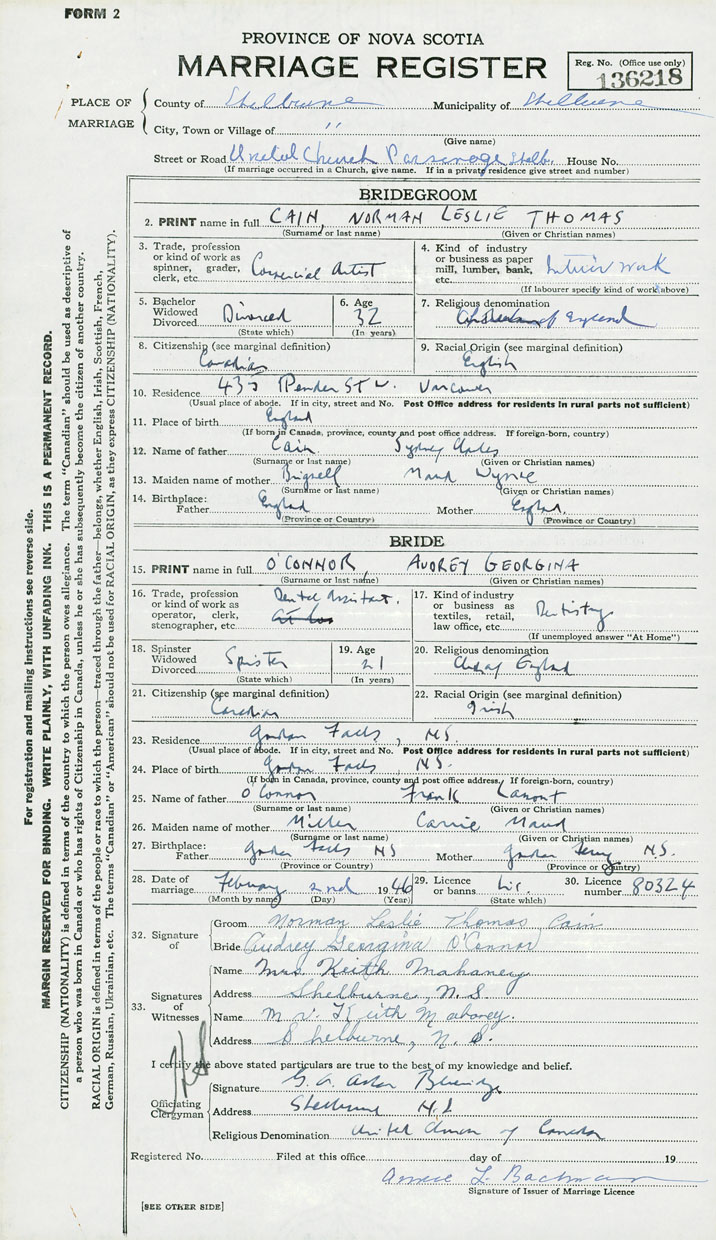 FORM 2
PROVINCE OF NOVA SCOTIA
MARRIAGE REGISTER
Reg. No. (Office use only)
136218
PLACE OF MARRIAGE
County of Shelburne Municipality of Shelburne
City, Town or Village of "
(Give name)
Street or Road United Church Parsonage Shelb. House No.
(If marriage occurred in a Church, give name. If in a private residence give street and number)
BRIDEGROOM
2. PRINT name in full CAIN, NORMAN LESLIE THOMAS
(Surname or last name) (Given or Christian names)
3. Trade, profession or kind of work as spinner, grader, clerk, etc. Comercial Artist
4. Kind of industry or business as paper mill, lumber, bank, etc. work
(If labourer specify kind of work above)
5. Bachelor Widowed Divorced Divorced
(State which)
6. Age 32
(In years)
7. Religious denomination of England
8. Citizenship (see marginal definition) Canadian
9. Racial Origin (see marginal definition) English
10. Residence Pender St W. Vancouver
(Usual place of abode. If in city, street and No. Post Office address for residents in rural parts not sufficient)
11. Place of birth England
(If born in Canada, province, county and post office address. If foreign-born, country)
12. Name of father Cain Sydney
(Surname or last name) (Given or Christian names)
13. Maiden name of mother Maud
(Surname or last name) (Given or Christian names)
14. Birthplace: Father England Mother England
(Province or Country) (Province or Country)
BRIDE
15. PRINT name in full O'CONNOR, AUDREY GEORGINA
(Surname or last name) (Given or Christian names)
16. Trade, profession or kind of work as operator, clerk, stenographer, etc. Dental Assistant.
17. Kind of industry or business as textiles, retail, law office, etc. Dentistry
(If unemployed answer "At Home")
18. Spinster Widowed Divorced Spister
(State which)
19. Age 21
(In years)
20. Religious denomination Ch of England
21. Citizenship (see marginal definition) Canadian
22. Racial Origin (see marginal definition) Irish
23. Residence Falls, N.S.
(Usual place of abode. If in city, street and No. Post Office address for residents in rural parts not sufficient)
24. Place of birth Falls N.S.
(If born in Canada, province, county and post office address. If foreign-born, country)
25. Name of father O'Connor Frank Lamont
(Surname or last name) (Given or Christian names)
26. Maiden name of mother Miller Carrie Maud
(Surname or last name) (Given or Christian names)
27. Birthplace: Father Falls NS Mother N.S.
(Province or Country) (Province or Country)
28. Date of marriage February 2nd 1946
(Month by name) (Day) (Year)
29. Licence or banns Lic.
(State which)
30. Licence number 80324
32. Signature of
Groom Norman Leslie Thomas Cain
Bride Audrey Georgina O'Connor
33. Signatures of Witnesses
Name Mrs. Keith Mahaney
Address Shelburne, N.S.
Name Mr. Keith Mahaney.
Address Shelburne, N.S.
I certify the above stated particulars are true to the best of my knowledge and belief.
Officiating Clergyman
Signature G. A.
Address Shelburne N.S
Religious Denomination United Church of Canada
Registered No. Filed at this office day of 19
L. Bachman
Signature of Issuer of Marriage Licence
[SEE OTHER SIDE]
For registration and mailing instructions see reverse side.
MARGIN RESERVED FOR BINDING. WRITE PLAINLY, WITH UNFADING INK. THIS IS A PERMANENT RECORD.
CITIZENSHIP (NATIONALITY) is defined in terms of the country to which the person owes allegiance. The term "Canadian" should be used as descriptive of
a person who was born in Canada or who has rights of Citizenship in Canada, unless he or she has subsequently become the citizen of another country.
RACIAL ORIGIN is defined in terms of the people or race to which the person—traced through the father—belongs, whether English, Irish, Scottish, French,
German, Russian, Ukrainian, etc. The terms "Canadian" or "American" should not be used for RACIAL ORIGIN, as they express CITIZENSHIP (NATIONALITY).